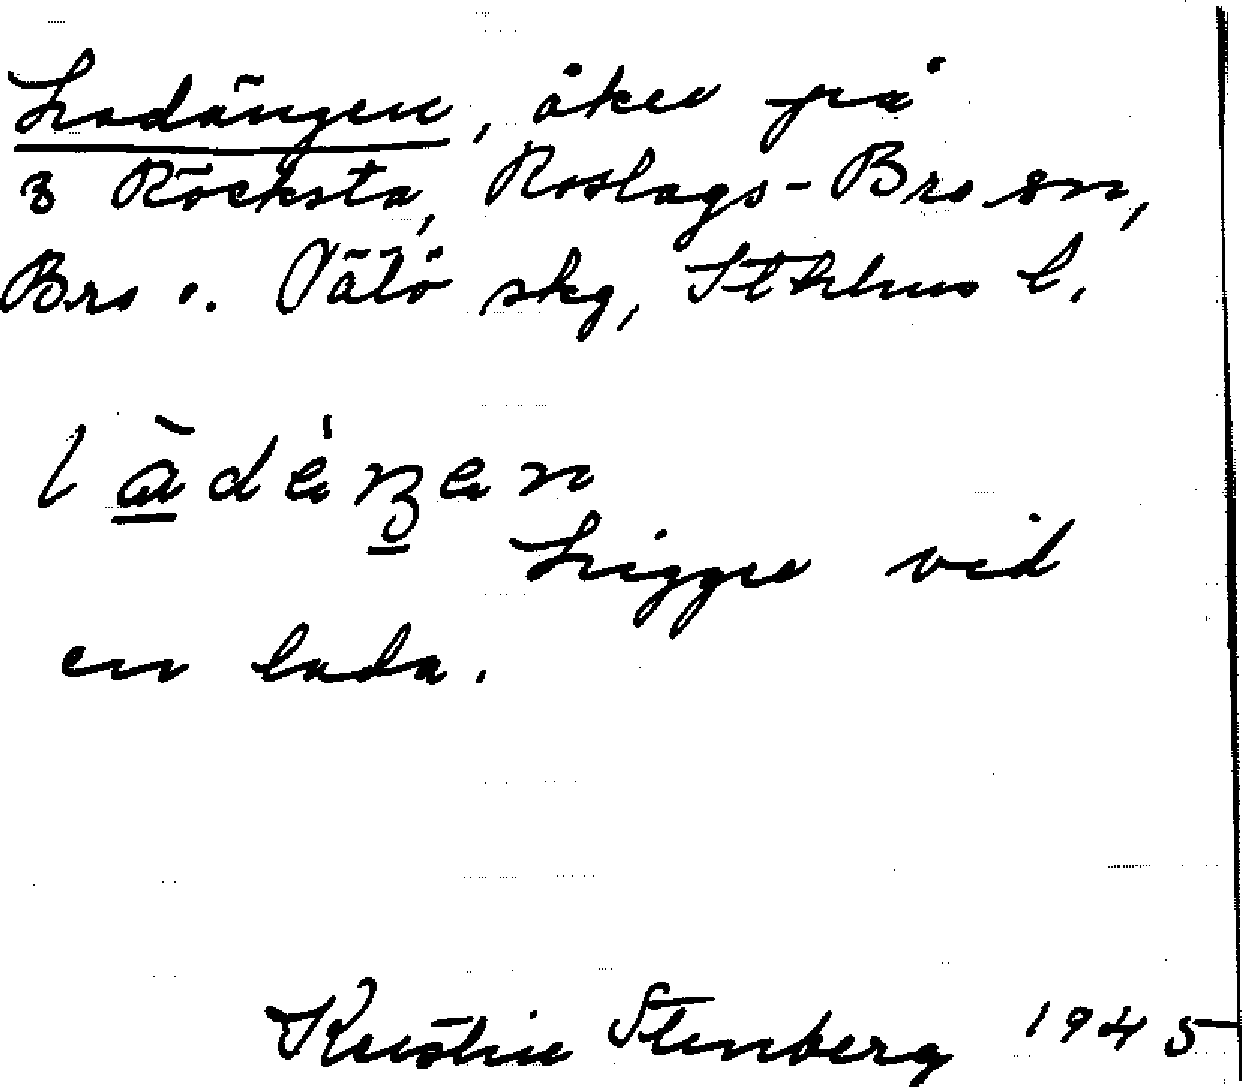 Ladängen, åker på
3 Röcksta, Roslags-Bro sn,
Bro o. Vätö skg, Sthlms l.
Ligger vid
en lada.
Kerstin Stenberg 1945